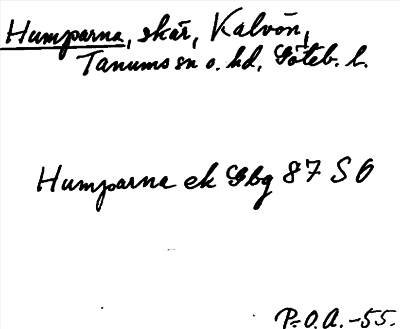 Humparna, skär, Kalvön,
Tanums sn o. hd, Göteb. l.
Humparna ek Gbg 87 SO
P.O.A. -55.